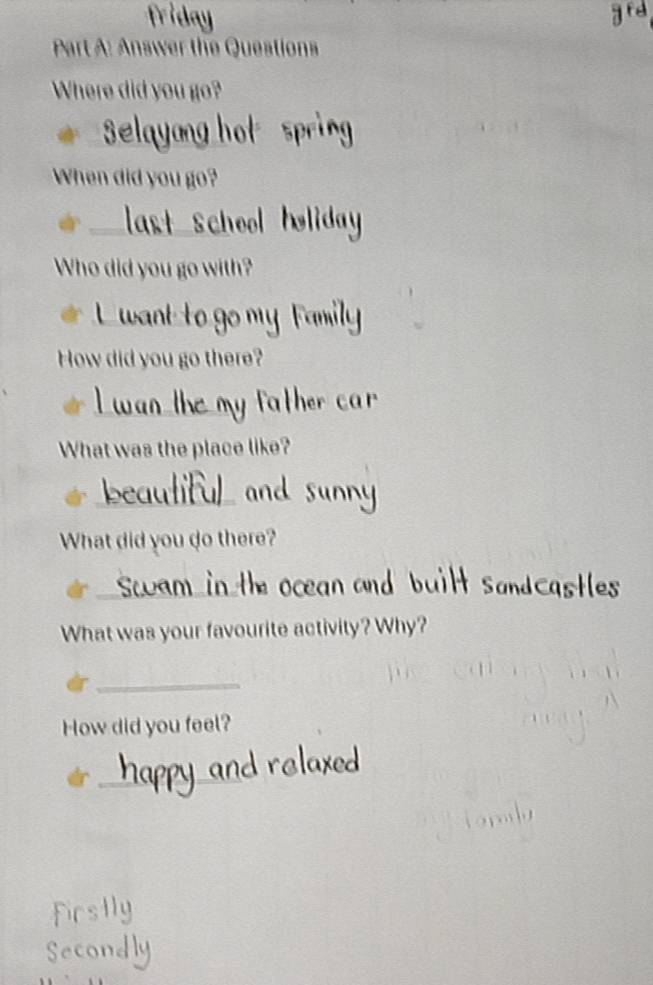 Friday
grd
Part A: Answer the Questions
Where did you go?
Selayang hot spring
When did you go?
last school holiday
Who did you go with?
I want to go my Family
How did you go there?
I wan the my Father car
What was the place like?
beautiful and sunny
What did you do there?
Swam in the ocean and built sandcastles
What was your favourite activity? Why?
How did you feel?
happy and relaxed
my family
Firstly
Secondly